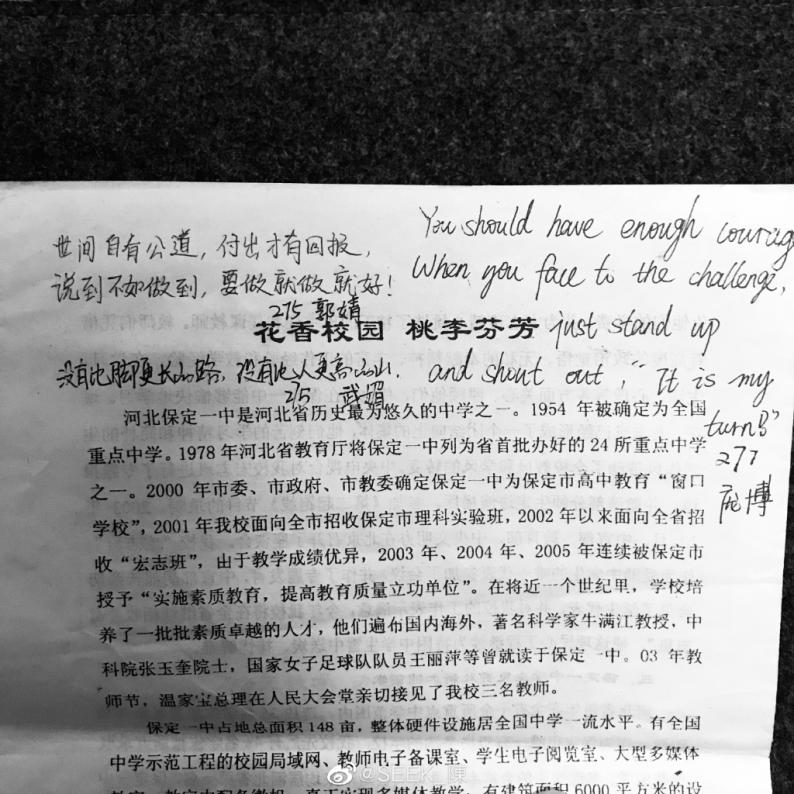 世间自有公道，付出才有回报，
说到不如做到，要做就做就好！
275 郭婧
You should have enough courag
When you face to the challenge,
just stand up
and shout out, "It is my
turn!"
277
庞博
花香校园 桃李芬芳
没有比脚更长的路，没有比人更高的山.
275 武媚
河北保定一中是河北省历史最为悠久的中学之一。1954 年被确定为全国
重点中学。1978 年河北省教育厅将保定一中列为省首批办好的 24 所重点中学
之一。2000 年市委、市政府、市教委确定保定一中为保定市高中教育“窗口
学校”，2001 年我校面向全市招收保定市理科实验班，2002 年以来面向全省招
收“宏志班”，由于教学成绩优异，2003 年、2004 年、2005 年连续被保定市
授予“实施素质教育，提高教育质量立功单位”。在将近一个世纪里，学校培
养了一批批素质卓越的人才，他们遍布国内海外，著名科学家牛满江教授，中
科院张玉奎院士，国家女子足球队队员王丽萍等曾就读于保定一中。03 年教
师节，温家宝总理在人民大会堂亲切接见了我校三名教师。
保定一中占地总面积 148 亩，整体硬件设施居全国中学一流水平。有全国
中学示范工程的校园局域网、教师电子备课室、学生电子阅览室、大型多媒体
教室，教室内配备微机，真正实现多媒体教学。有建筑面积 6000 平方米的设
@SEEK_陳